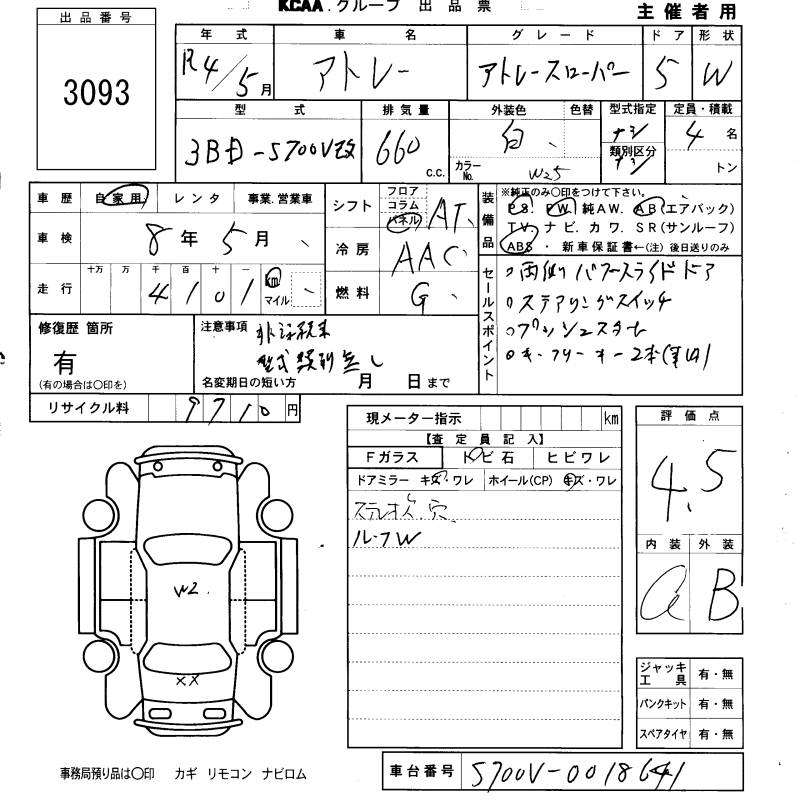 KCAA.グループ 出品票
主催者用
出品番号
3093
年式 車名 グレード ドア 形状
R4/5月 アトレー アトレースローパー 5 W
型式 排気量 外装色 色替 型式指定 定員・積載
3BD-S700V改 660 c.c. 白、 ナシ 4名
カラーNo. W25 類別区分 ナシ トン
車歴 自家用 レンタ 事業.営業車
車検 8年5月、
走行 十万 万 千 百 十 一
4101 km マイル
シフト フロア コラム パネル AT.
冷房 AAC
燃料 G、
装備品 ※純正のみ〇印をつけて下さい。
P.S. P.W. 純AW. AB(エアバック)
TV. ナビ. カワ. SR(サンルーフ)
ABS・新車保証書←(注) 後日送りのみ
セールスポイント
○両側パワースライドドア
○ステアリングスイッチ
○プッシュスタート
○キーフリーキー2本
修復歴 箇所
有
(有の場合は〇印を)
注意事項
型式類別無し
名変期日の短い方 月 日まで
リサイクル料 9710円
現メーター指示 km
【査定員記入】
Fガラス トビ石 ヒビワレ
ドアミラー キズ・ワレ ホイール(CP) キズ・ワレ
穴
ルーフW
評価点
4.5
内装 外装
a B
W2.
XX
ジャッキ工具 有・無
パンクキット 有・無
スペアタイヤ 有・無
事務局預り品は〇印 カギ リモコン ナビロム
車台番号 S700V-0018641